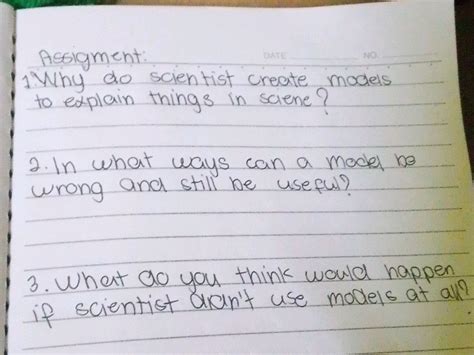 Assigment:
DATE NO.
1. Why do scientist create models
to explain things in sciene?
2. In what ways can a model be
wrong and still be useful?
3. What do you think would happen
if scientist didn't use models at all?